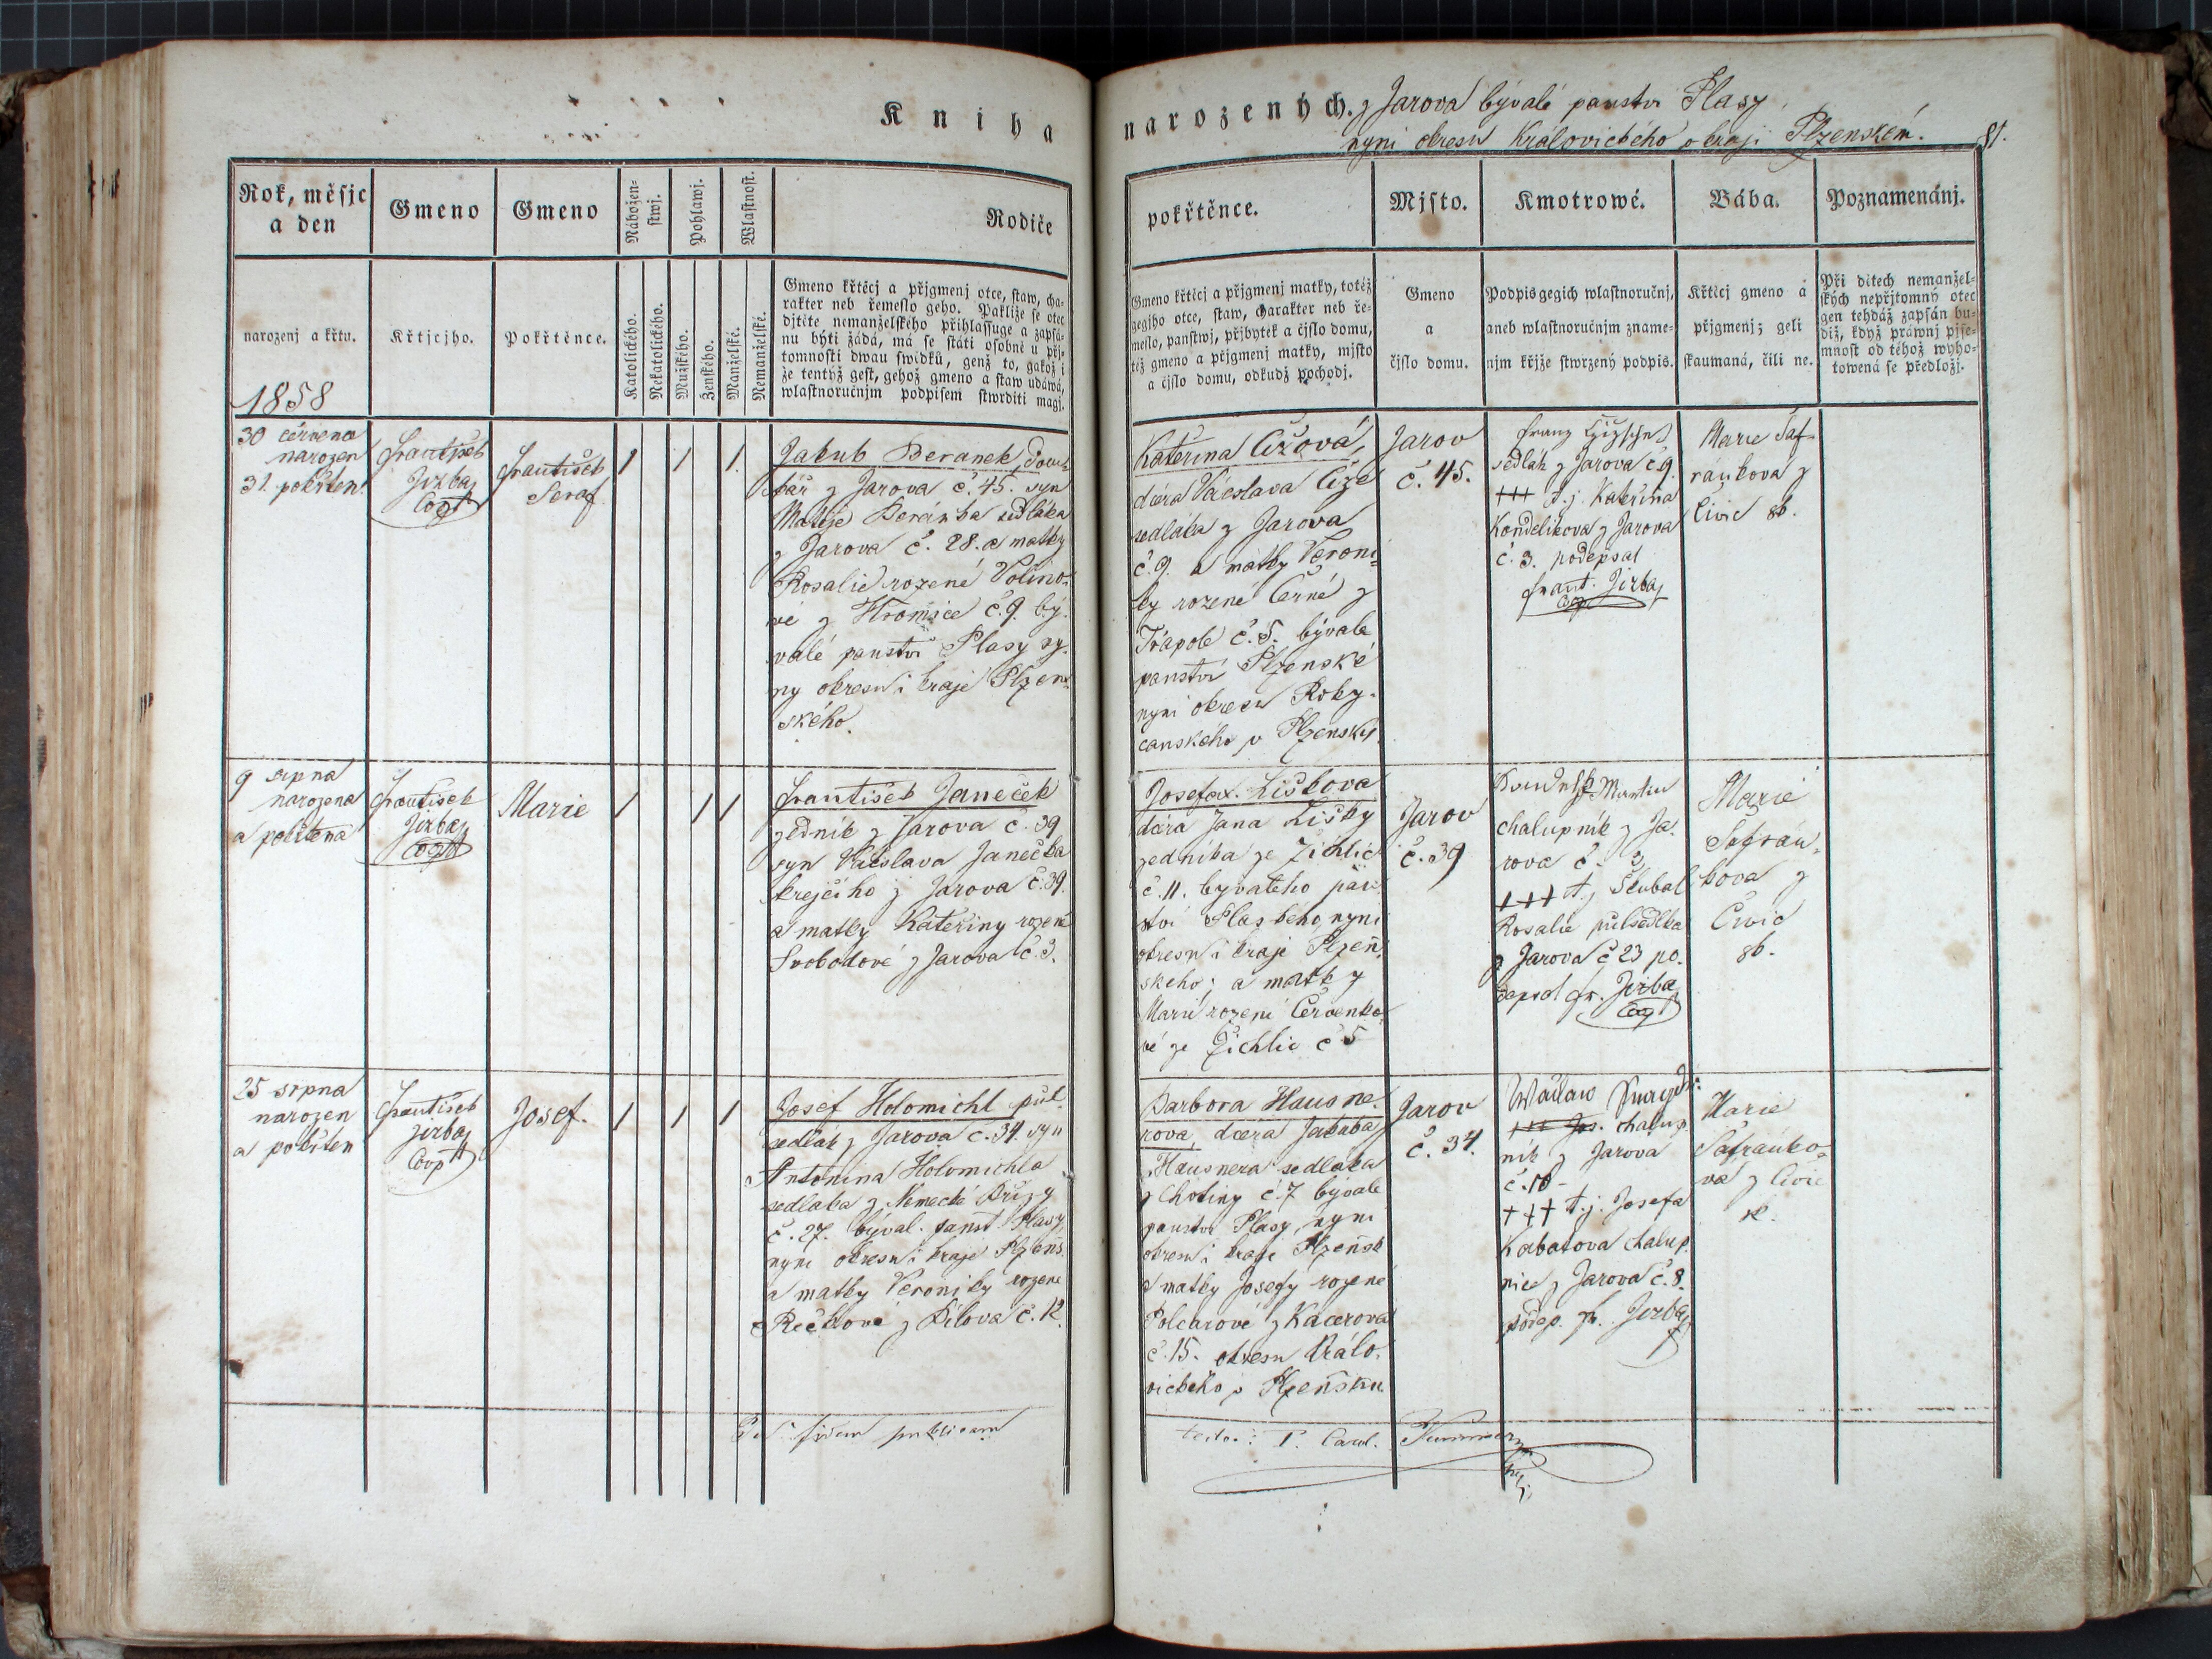 Kniha
narozených. z Jarova bývalé panství Plasy
nyni okresu Královického v kraji Plzenském.
81.
Rok, měsjc
a den
Gmeno
Gmeno
Nábožen-
stwj.
Pohlawj.
Wlastnost.
Rodiče
narozenj a křtu.
1858
Křtjcjho.
Pokřtěnce.
Katolického.
Nekatolického.
Mužského.
Ženského.
Manželské.
Nemanželské.
Gmeno křtěcj a přjgmenj otce, staw, cha-
rakter neb řemeslo geho. Pakliže se otec
djtěte nemanželského přihlassuge a zapsá-
nu býti žádá, má se státi osobně u přj-
tomnosti dwau swědků, genž to, gakož i
že tentýž gest, gehož gmeno a staw udáwá,
wlastnoručnjm podpisem stwrditi magj.
pokřtěnce.
Mjsto.
Kmotrowé.
Bába.
Poznamenánj.
Gmeno křtěcj a přjgmenj matky, totéž
gegjho otce, staw, charakter neb ře-
meslo, panstwj, přjbytek a čjslo domu,
též gmeno a přjgmenj matky, mjsto
a čjslo domu, odkudž pochodj.
Gmeno
a
čjslo domu.
Podpis gegich wlastnoručnj,
aneb wlastnoručnjm zname-
njm křjže stwrzený podpis.
Křtěcj gmeno a
přjgmenj; geli
skaumaná, čili ne.
Při djtech nemanžel-
ských nepřjtomný otec
gen tehdáž zapsán bu-
diž, když práwnj pjse-
mnost od téhož wyho-
towená se předložj.
30 července
narozen
31. pokřten.
František
Jirba
Coop
František
Seraf
1 1 1
Jakub Beranek, dom-
kář z Jarova č. 45. syn
Matěje Beránka sedláka
z Jarova č. 28. a matky
Rosalie rozené Volino-
vé z Hromice č. 9. bý-
valé panství Plasy ny-
ny okresu i kraje Plzen-
ského.
Kateřina Čižová,
dcera Václava Čize
sedláka z Jarova
č. 9. a matky Veroni-
ky rozené Černé z
Trapole č. 5. bývalé
panství Plzenské
nyni okresu Roky-
canského v Plzensk
Jarov
č. 45.
Franz
sedlák z Jarova č. 9
+++ t. j. Kateřina
Kondelikova z Jarova
č. 3. podepsal
frant. Jirba
Coop
Marie Šaf-
ránkova z
Čivic 86.
9 srpna
narozena
a pokřtena
František
Jirba
Coop
Marie
1 1 1
František Janeček
zedník z Jarova č. 39
syn Václava Janečka
krejčího z Jarova č. 39.
a matky Kateřiny rozené
Svobodové z Jarova č. 3.
Josefa Liškova
dcera Jana Lišky
zedníka ze Žichlic
č. 11. byvalého pan-
ství Plaského nyni
okresu i kraje Plzeň-
ského; a matky
Marie rozené Červenko-
vé ze Žichlic č 5
Jarov
č. 39
Martin
chalupník z Ja-
rova č. 3
+++ t. j Škubal
Rosalie půlsedlka
z Jarova č 23 po-
depsal fr. Jirba
Coop
Marie
Šafrán-
kova z
Čivic
86.
25 srpna
narozen
a pokřten
František
Jirba
Coop
Josef.
1 1 1
Josef Holomichl půl-
sedlák z Jarova č. 34. syn
Antonína Holomichla
sedlaka z Německé Břízy
č. 27. býval. panst. Plasy,
nyni okresu i kraje Plzeňs.
a matky Veroniky rozené
z Bílova č. 12.
Barbora Hausne-
rova, dcera Jakuba
Hausnera sedláka
z Chotiny č. 7 bývalé
panství Plasy nyni
okresu i kraje Plzeňsk
a matky Josefy rozené
Polcarové z Kacerova
č. 15. okresu Králo-
vického v Plzeňsku.
Jarov
č. 34.
Wáclaw
+++ Jos. chalup
ník z Jarova
č. 10 -
+++ t. j. Josefa
Kabátova chalup-
nice z Jarova č. 8.
podep. fr. Jirba
Marie
Šafránko-
vá z Čivic
fidem publicam
testor: P. Carol.